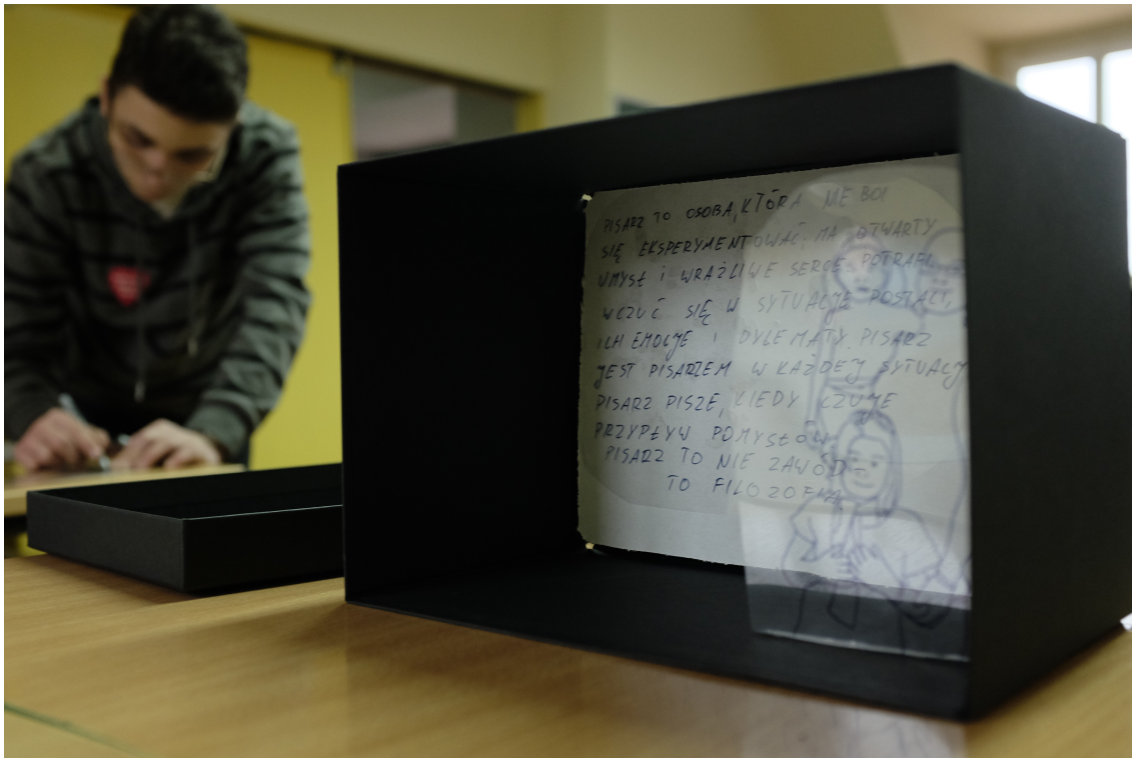 PISARZ TO OSOBA, KTÓRA NIE BOI
SIĘ EKSPERYMENTOWAĆ, MA OTWARTY
UMYSŁ I WRAŻLIWE SERCE. POTRAFI
WCZUĆ SIĘ W SYTUACJE POSTACI,
ICH EMOCJE I DYLEMATY. PISARZ
JEST PISARZEM W KAŻDEJ SYTUACJI
PISARZ PISZE, KIEDY CZUJE
PRZYPŁYW POMYSŁÓW
PISARZ TO NIE ZAWÓD-
TO FILOZOFIA